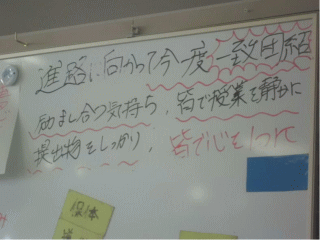 進路に向かって今一度一致団結
励まし合う気持ち、皆で授業を静かに
提出物をしっかり、皆で心を1つに
保体